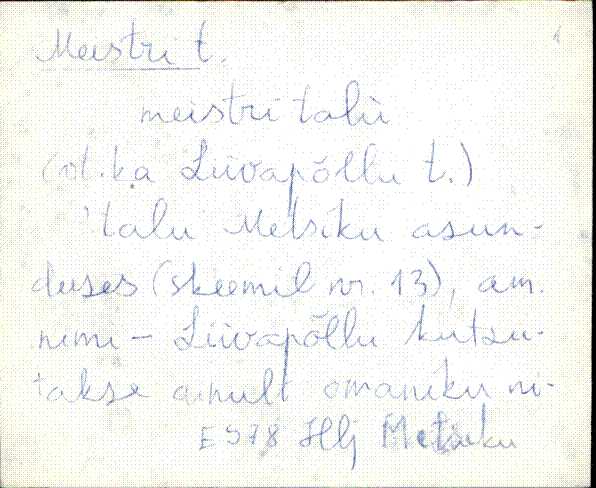 Meistri t.
meistri talù
(vt. ka Liivapõllu t.)
'talu Metsiku asun-
duses (skeemil nr. 13), am.
nimi – Liivapõllu kutsu-
takse ainult omaniku ni-
E 978 Hlj Metsiku